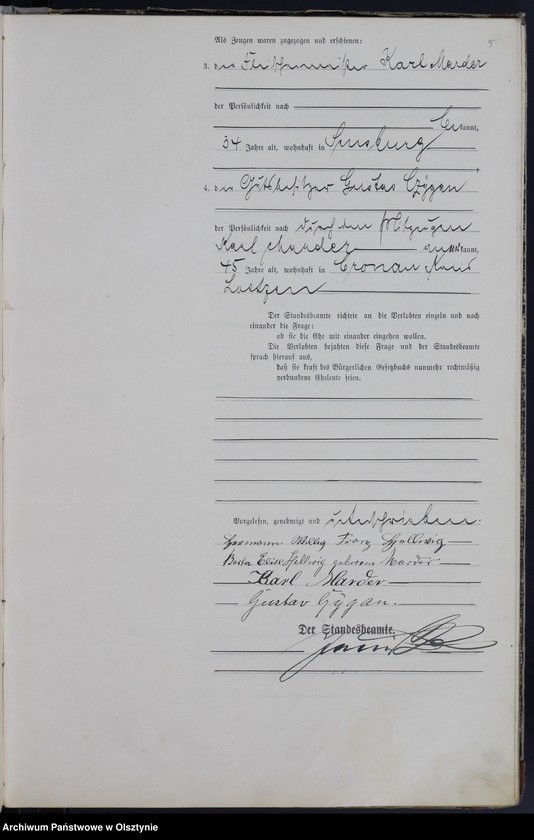 5
Als Zeugen waren zugezogen und erschienen:
3. der Fleischermeister Karl Marder
der Persönlichkeit nach
bekannt,
34 Jahre alt, wohnhaft in Sensburg
4. der Gutsbesitzer Gustav Czygan
der Persönlichkeit nach durch den Mitzeugen
Karl Marder anerkannt,
45 Jahre alt, wohnhaft in Cronau Kreis
Loetzen
Der Standesbeamte richtete an die Verlobten einzeln und nach
einander die Frage:
ob sie die Ehe mit einander eingehen wollen.
Die Verlobten bejahten diese Frage und der Standesbeamte
sprach hierauf aus,
daß sie kraft des Bürgerlichen Gesetzbuchs nunmehr rechtmäßig
verbundene Eheleute seien.
Vorgelesen, genehmigt und unterschrieben:
Hermann Willy Franz Hellwig
Berta Elise Hellwig geborene Marder
Karl Marder
Gustav Czygan.
Der Standesbeamte.
Archiwum Państwowe w Olsztynie